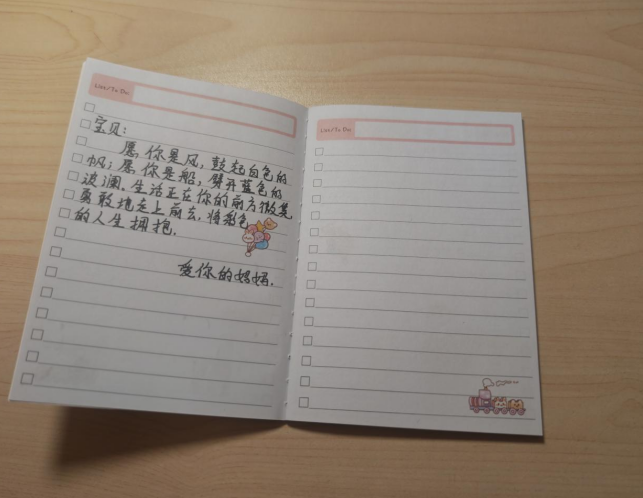 List/To Do:
宝贝:
愿你是风,鼓起白色的
帆;愿你是船,劈开蓝色的
波澜。生活正在你的前方微笑
勇敢地走上前去,将彩色
的人生拥抱。
爱你的妈妈.
List/To Do: